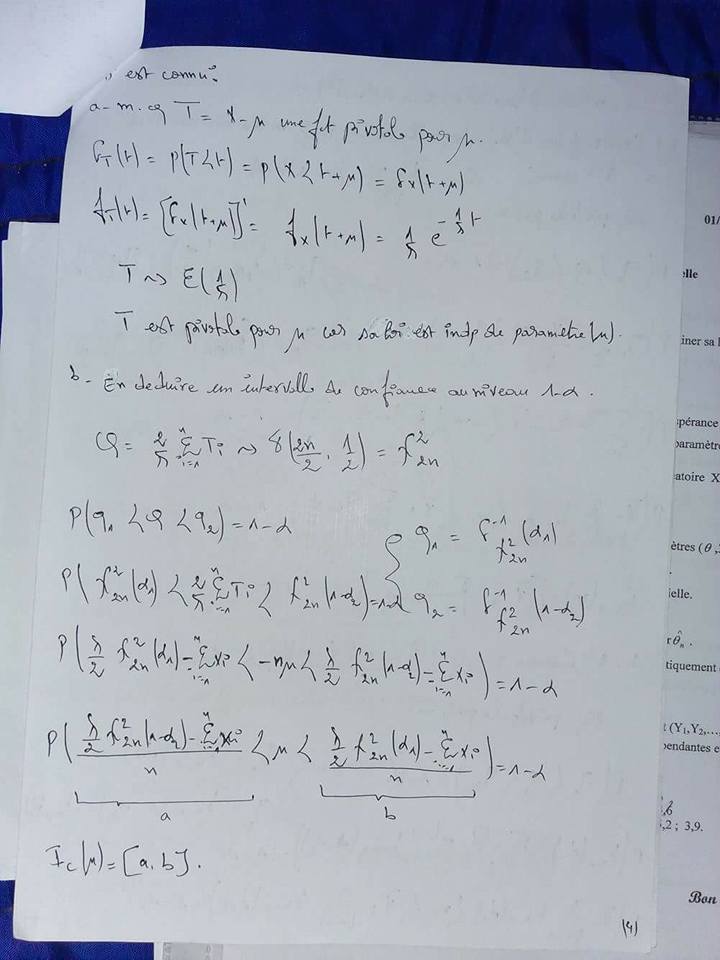 est connu.
a - m. q T = X - μ une fct pivotale pour μ.
F_T(t) = P(T < t) = P(X < t + μ) = F_X(t + μ)
f_T(t) = [F_X(t + μ)]' = f_X(t + μ) = 1/λ e^{-1/λ t}
T ~> E(1/λ)
T est pivotale pour μ car sa loi est indp de parametre (μ).
b - En deduire un intervalle de confiance au niveau 1-α.
Q = 2/λ Σ_{i=1}^n Ti ~> γ(2n/2, 1/2) = χ²_{2n}
P(q₁ < Q < q₂) = 1-α { q₁ = F^{-1}_{χ²_{2n}}(α₁)
P(χ²_{2n}(α₁) < 2/λ Σ_{i=1}^n Ti < χ²_{2n}(1-α₂)) = 1-α q₂ = F^{-1}_{χ²_{2n}}(1-α₂)
P(λ/2 χ²_{2n}(α₁) - Σ_{i=1}^n xi < -nμ < λ/2 χ²_{2n}(1-α₂) - Σ_{i=1}^n xi) = 1-α
P((λ/2 χ²_{2n}(1-α₂) - Σ_{i=1}^n xi)/n < μ < (λ/2 χ²_{2n}(α₁) - Σ_{i=1}^n xi)/n) = 1-α
a b
Ic(μ) = [a, b].
(4)
01/
elle
iner sa l
spérance
paramètr
atoire X
ètres (θ,
ielle.
r θ̂n .
tiquement
t (Y1,Y2,...,
pendantes e
,6
,2 ; 3,9.
Bon